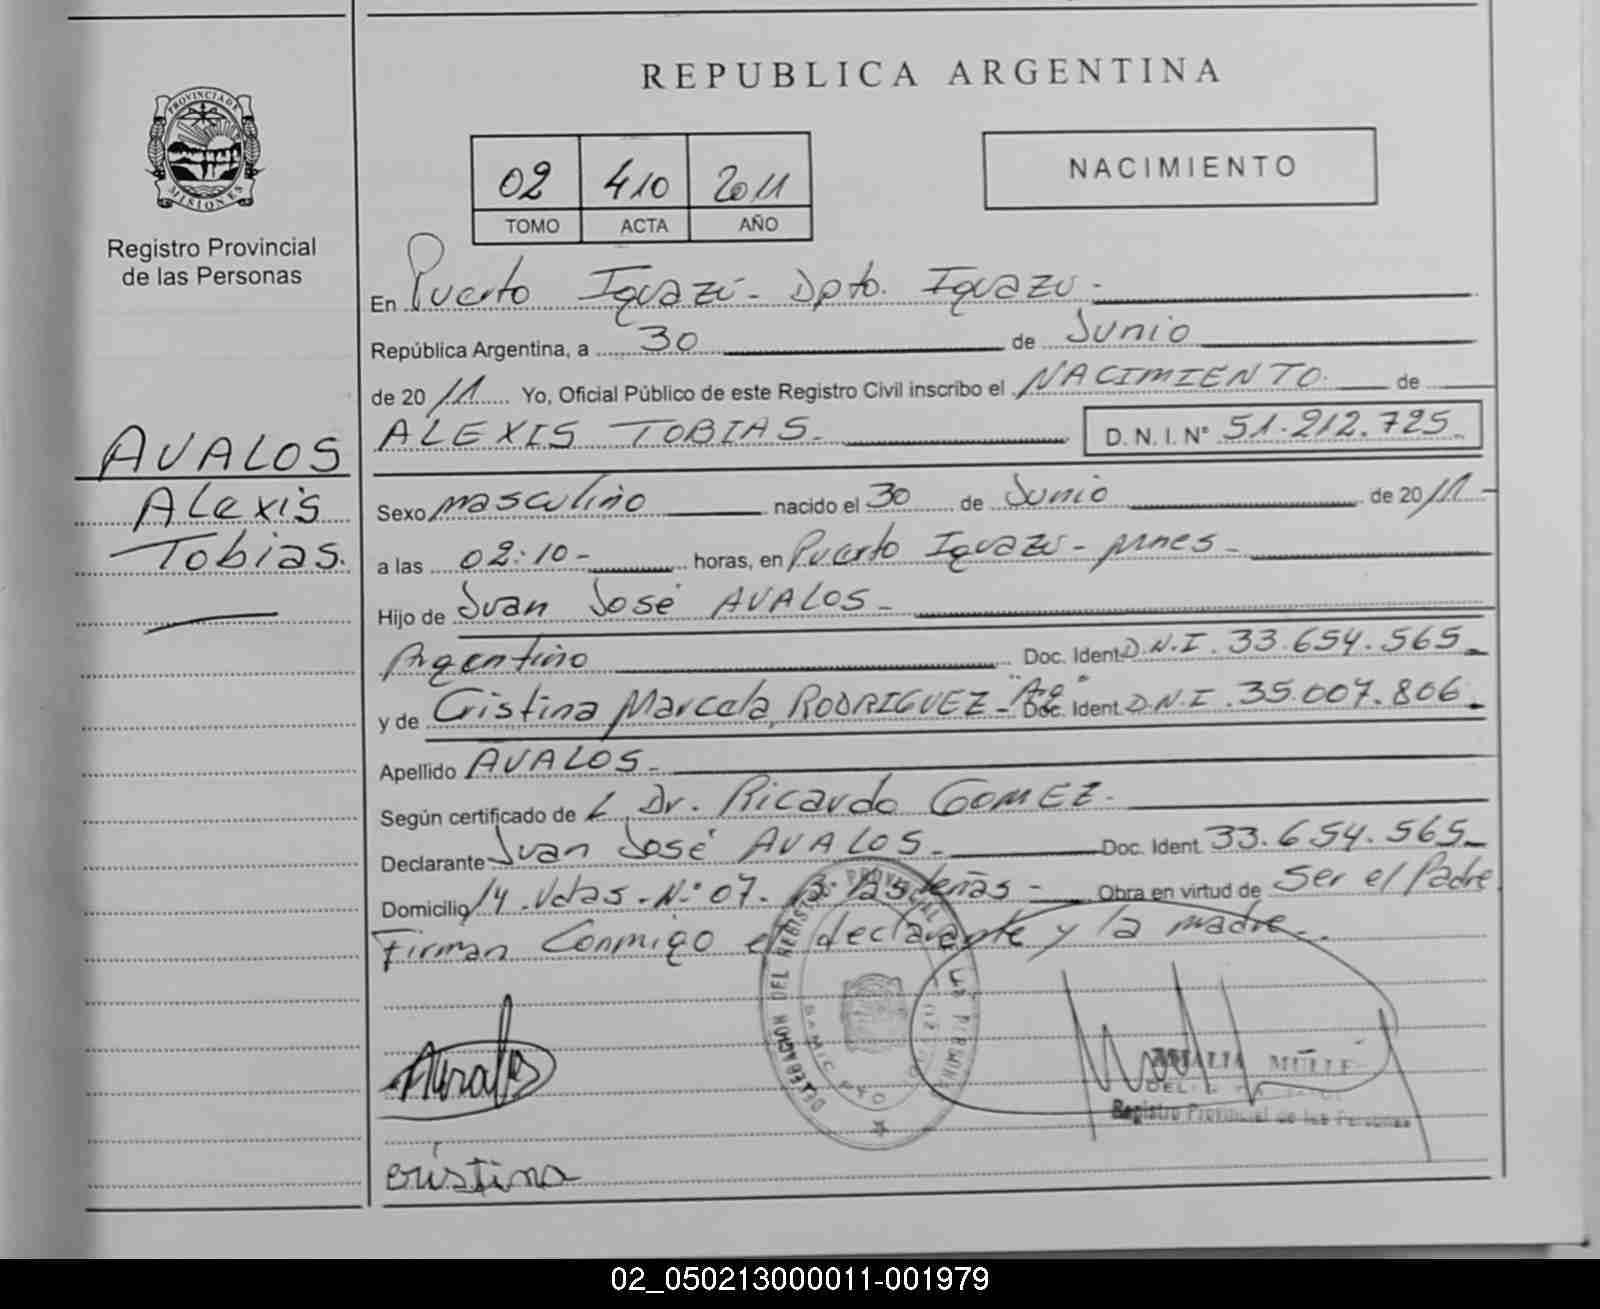 REPUBLICA ARGENTINA
PROVINCIA DE MISIONES
Registro Provincial
de las Personas
02 410 2011
TOMO ACTA AÑO
NACIMIENTO
En Puerto Iguazú - Dpto. Iguazú -
República Argentina, a 30 de Junio
de 2011 Yo, Oficial Público de este Registro Civil inscribo el NACIMIENTO de
ALEXIS TOBIAS. D.N.I. Nº 51.212.725.
AVALOS
Alexis
Tobias.
Sexo masculino nacido el 30 de Junio de 2011 -
a las 02:10 - horas, en Puerto Iguazú - mnes -
Hijo de Juan José AVALOS -
Argentino Doc. Ident D.N.I. 33.654.565
y de Cristina Marcela RODRIGUEZ - "Ag" Doc. Ident D.N.I. 35.007.806.
Apellido AVALOS -
Según certificado de L Dr. Ricardo GOMEZ -
Declarante Juan José AVALOS - Doc. Ident 33.654.565
Domicilio 14 Vdas. Nº 07. B: las - Obra en virtud de Ser el Padre
Firman Conmigo el declarante y la madre.
DELEGACION DEL REGISTRO PROVINCIAL DE LAS PERSONAS
Avalos
MULLE
Registro Provincial de las Personas
cristina
02_050213000011-001979